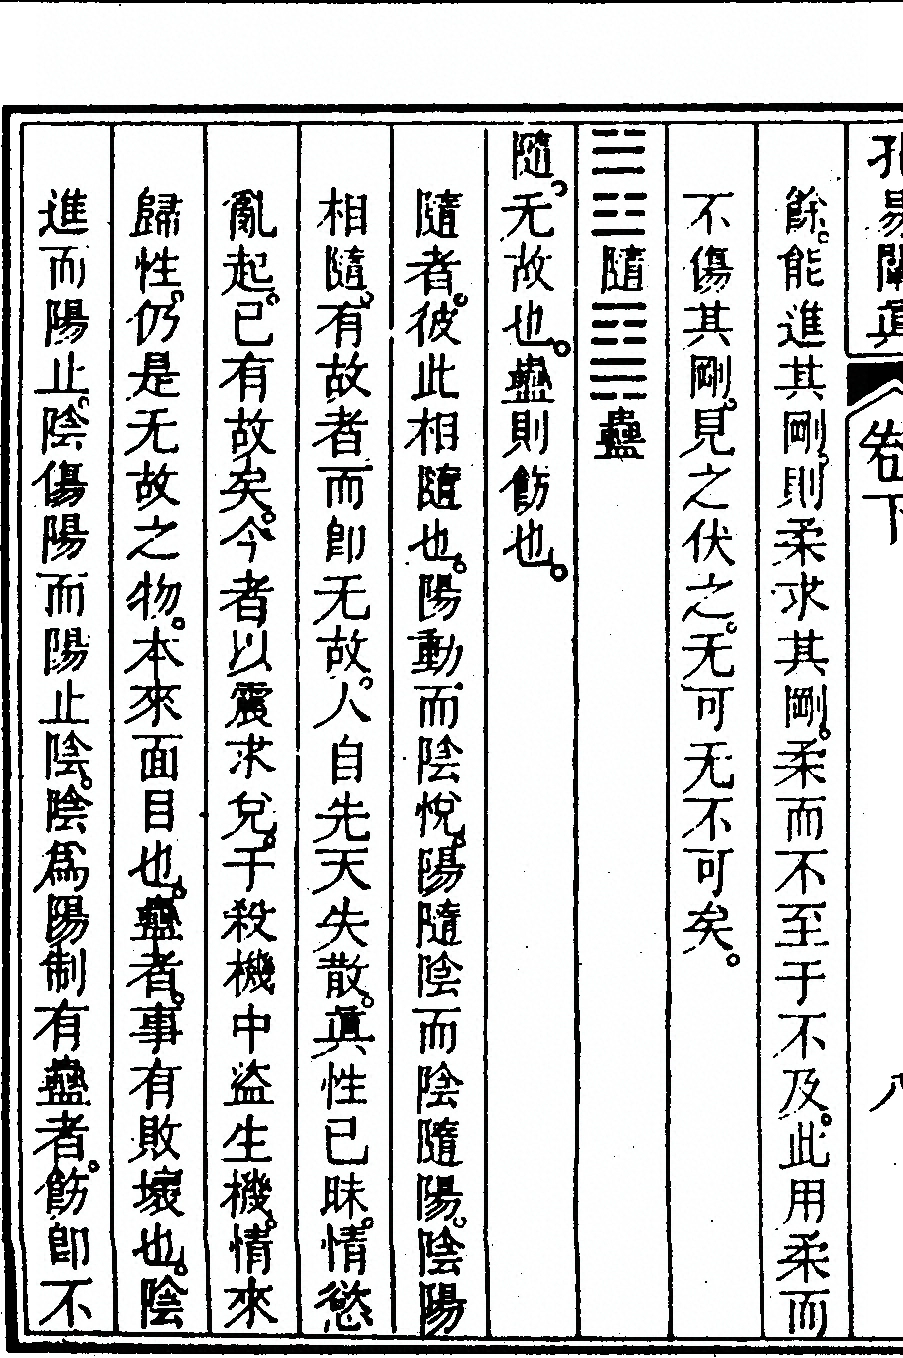 孔易闡眞 卷下 八
餘。能進其剛。則柔求其剛。柔而不至于不及。此用柔而
不傷其剛。見之伏之。无可无不可矣。
䷐隨䷑蠱
隨。无故也。蠱則飭也。
隨者。彼此相隨也。陽動而陰悅。陽隨陰而陰隨陽。陰陽
相隨。有故者而卽无故。人自先天失散。眞性已昧。情慾
亂起。已有故矣。今者以震求兌。于殺機中盜生機。情來
歸性。仍是无故之物。本來面目也。蠱者。事有敗壞也。陰
進而陽止。陰傷陽而陽止陰。陰爲陽制有蠱者。飭卽不